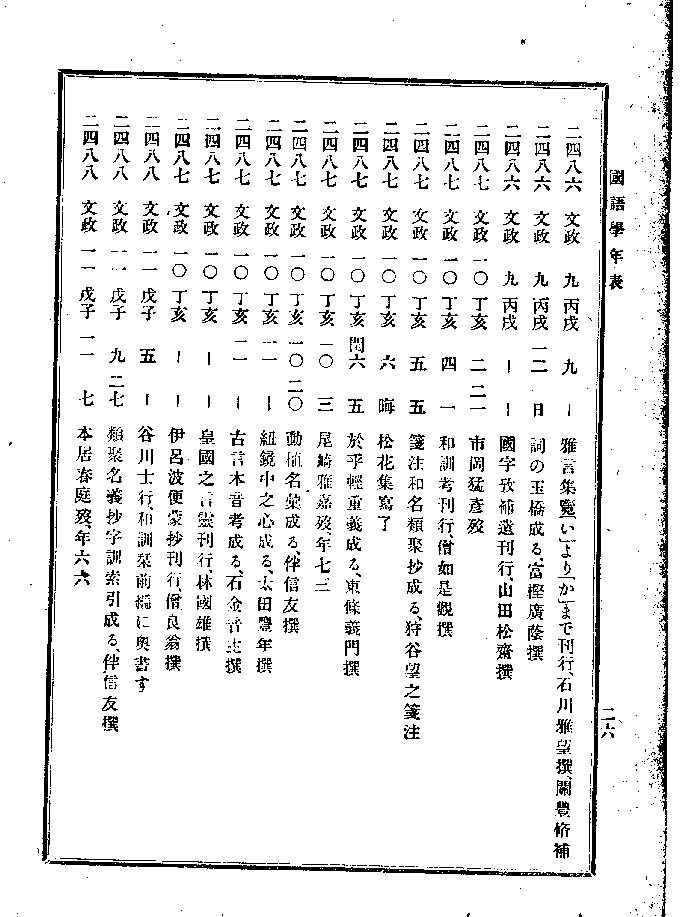 國語學年表
二六
二四八六 文政 九 丙戌 九 ー 雅言集覽「い」より「か」まで刊行、石川雅望撰、關豐脩補
二四八六 文政 九 丙戌 一二 日 詞の玉橋成る、富樫廣蔭撰
二四八六 文政 九 丙戌 ー ー 國字攷補遺刊行、山田松齋撰
二四八七 文政 一〇 丁亥 二 二一 市岡猛彥歿
二四八七 文政 一〇 丁亥 四 一 和訓考刊行、僧如是觀撰
二四八七 文政 一〇 丁亥 五 五 箋注和名類聚抄成る、狩谷望之箋注
二四八七 文政 一〇 丁亥 六 晦 松花集寫了
二四八七 文政 一〇 丁亥 閏六 五 於乎輕重義成る、東條義門撰
二四八七 文政 一〇 丁亥 一〇 三 尾崎雅嘉歿、年七三
二四八七 文政 一〇 丁亥 一〇 二〇 動植名彙成る、伴信友撰
二四八七 文政 一〇 丁亥 一一 ー 紐鏡中之心成る、太田豐年撰
二四八七 文政 一〇 丁亥 一一 ー 古言本音考成る、石金音主撰
二四八七 文政 一〇 丁亥 ー ー 皇國之言靈刊行、林國雄撰
二四八七 文政 一〇 丁亥 ー ー 伊呂波便蒙抄刊行、僧良翁撰
二四八八 文政 一一 戊子 五 ー 谷川士行、和訓栞前編に奧書す
二四八八 文政 一一 戊子 九 二七 類聚名義抄字訓索引成る、伴信友撰
二四八八 文政 一一 戊子 一一 七 本居春庭歿、年六六